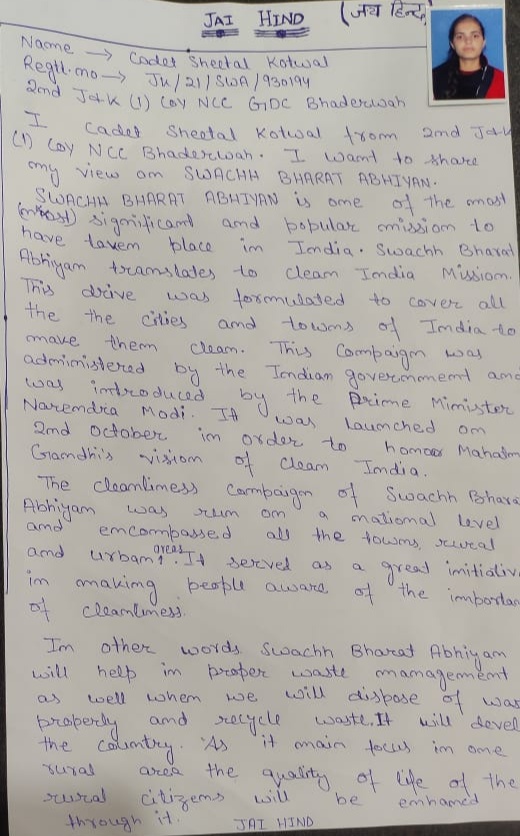 JAI HIND (जय हिन्द)
Name → Cadet Sheetal Kotwal
Regtl. no → JK/21/SWA/930194
2nd J&K (1) Coy NCC GDC Bhaderwah
I Cadet Sheetal Kotwal from 2nd J&K
(1) Coy NCC Bhaderwah. I want to share
my view on SWACHH BHARAT ABHIYAN.
SWACHH BHARAT ABHIYAN is one of the most
(most) significant and popular mission to
have taven place in India. Swachh Bharat
Abhiyan translates to clean India Mission.
This drive was formulated to cover all
the the cities and towns of India to
make them clean. This Campaign was
administered by the Indian government and
was introduced by the Prime Minister
Narendra Modi. It was launched on
2nd October in order to honor Mahatm
Gandhi's vision of clean India.
The cleanliness campaign of Swachh Bhara
Abhiyan was run on a national level
and encompassed all the towns, rural
and urban areas. It served as a great initiativ
in making people aware of the importan
of cleanliness.
In other words Swachh Bharat Abhiyan
will help in proper waste management
as well when we will dispose of was
properly and recycle waste. It will devel
the country. As it main focus in one
rural area the quality of life of the
rural citizens will be enhanced
through it. JAI HIND